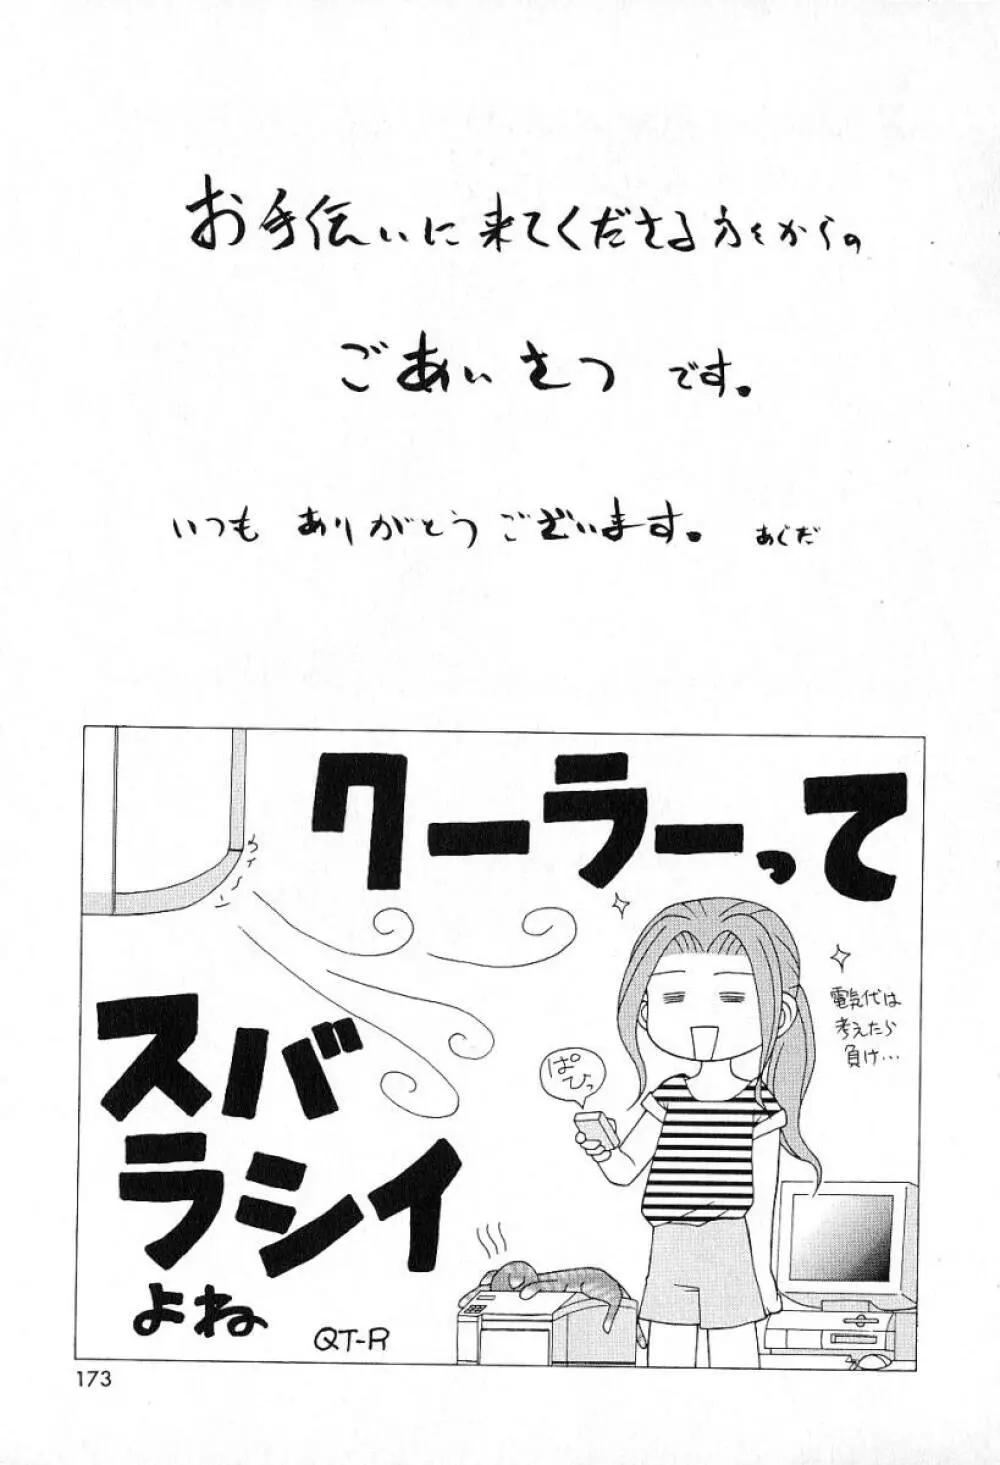 お手伝いに来てくださる方々からの
ごあいさつ です。
いつも ありがとうございます。 あぐだ
クーラーって
スバ
ラシイ
よね
電気代は
考えたら
負け…
ぱ
ぴっ
QT-R
173